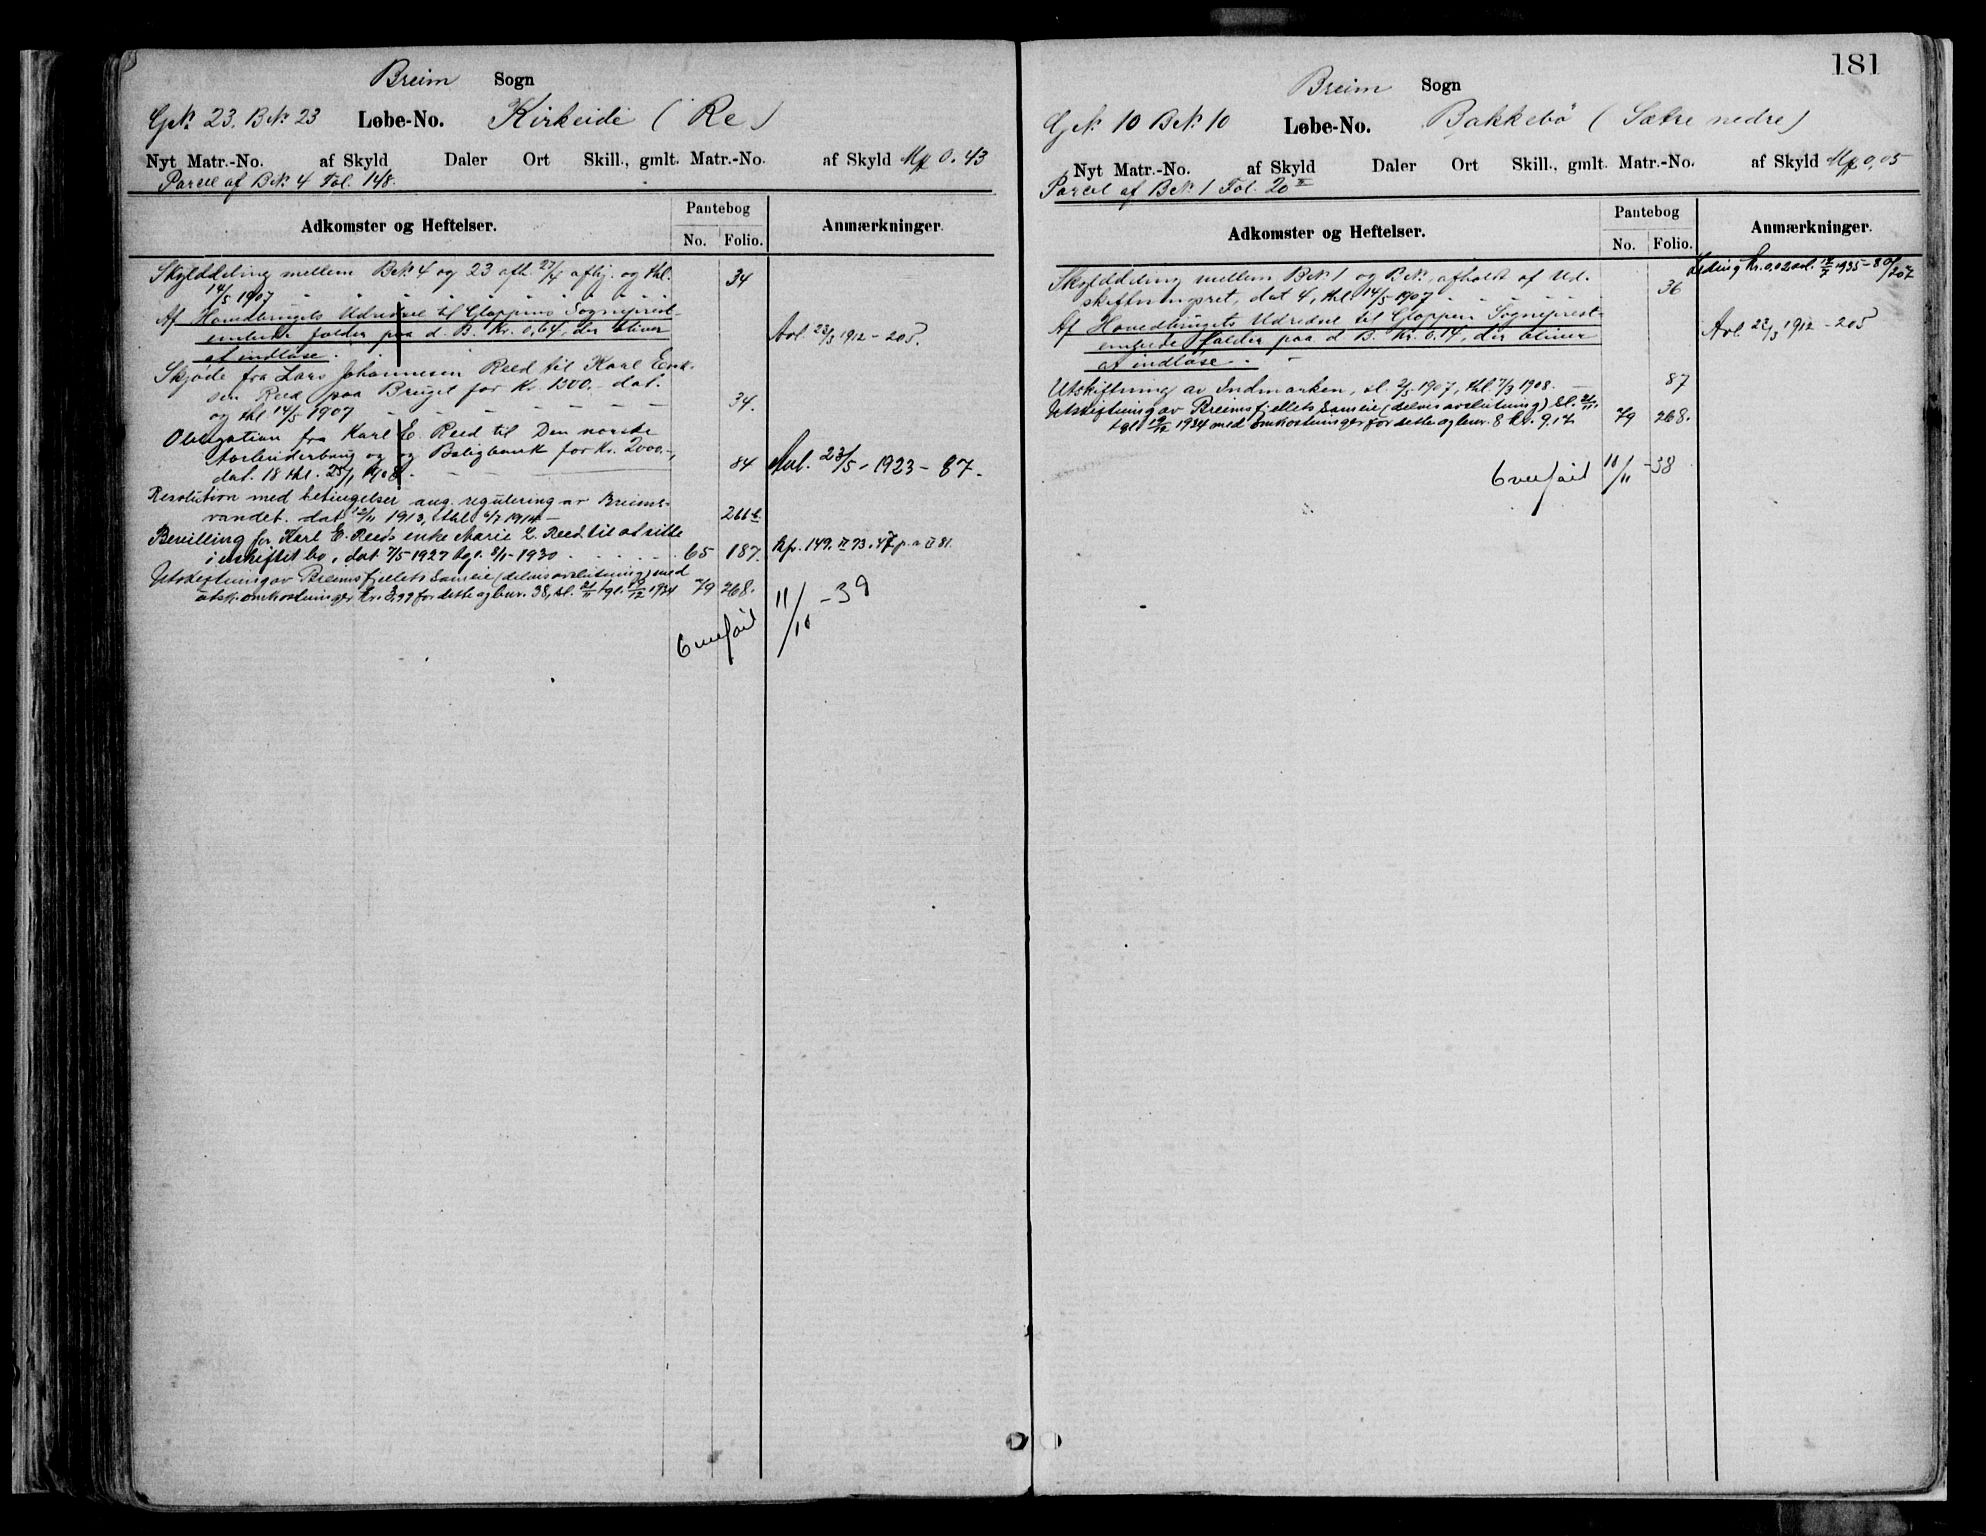 Breim Sogn
GNo. 23. BNo. 23 Løbe-No. Kirkeide (Re)
Nyt Matr.-No. af Skyld Daler Ort Skill., gmlt. Matr.-No. af Skyld Mk 0.43
Parcel af BNo. 4 Fol. 148.
Adkomster og Heftelser. Pantebog No. Folio. Anmærkninger.
Skylddeling mellem BNo. 4 og 23 afh. 27/4 afhj. og thl.
14/5 1907 34
Af Hovedbrugets Udredsel til Gloppens Sogneprest-
embede falder paa d. B. Kr. 0,64, der bliver Avl. 23/3 1912 – 205.
at indløse.
Skjøde fra Lars Johannesen Reed til Karl Enk-
sen Reed paa Bruget for Kr. 1500. dat.
og thl 14/5 1907 34.
Obligation fra Karl E. Reed til Den norske
Arbeiderbrug og Boligbank for Kr. 2000.-,
dat. 18 thl. 25/1 1908. 84 Avl. 23/5 - 1923 - 87.
Resolution med betingelser ang. regulering av Breims-
vandet. dat 12/11 1913, thl 6/7 1914 266b
Bevilling for Karl E. Reeds enke Marie L. Reed til at sitte
i uskiftet bo, dat. 7/5 1927 tgl. 8/1 - 1930 65 187. Kfr. 149. II 73. 47 p. a II 81.
Utskiftning av Breimsfjellets Sameie (delvis avslutning) med
utsk.omkostninger kr. 3,99 for dette og bnr. 38, sl. 21/11 tgl. 19/12 1934 79 268.
Overført 11/10 - 39
181
Breim Sogn
GNo. 10 BNo. 10 Løbe-No. Bakkebø (Sætre nedre)
Nyt Matr.-No. af Skyld Daler Ort Skill., gmlt. Matr.-No. af Skyld Mk 0,05
Parcel af BNo. 1 Fol. 20 II
Adkomster og Heftelser. Pantebog No. Folio. Anmærkninger.
Leding kr. 0,02 avl. 12/7 1935 - 80/207
Skylddeling mellem BNo. 1 og BNo., afholdt af Ud-
skiftningsret, dat 4, thl 14/5 1907 36
Af Hovedbrugets Udredsel til Gloppen Sogneprest-
embede falder paa d B. Kr. 0.14, der bliver Avl 23/3 1912 - 205
at indløse.
Utskiftning av Indmarken, sl. 2/5 1907, thl 7/9 1908. 87
Utskiftning av Breimsfjellets Sameie (delvis avslutning) sl. 21/11
tgl. 19/12 1934 med omkostninger for dette og bnr. 8 kr. 9.17 79 268.
Overført 10/11 - 38